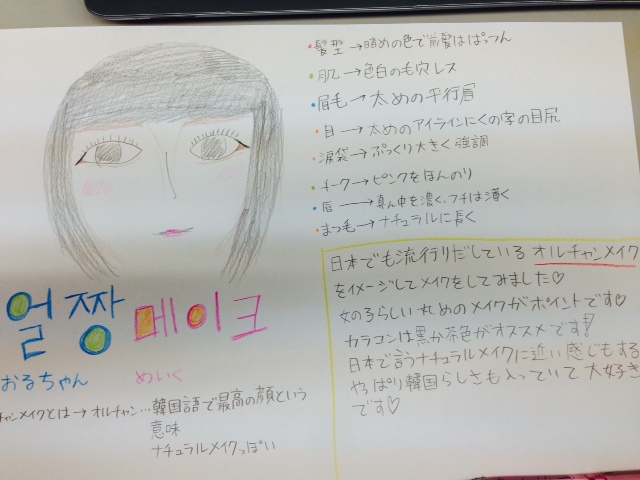 •髪型→暗めの色で前髪はぱっつん
•肌→色白の毛穴レス
•眉毛→太めの平行眉
•目→太めのアイラインにくの字の目尻
•涙袋→ぷっくり大きく強調
•チーク→ピンクをほんのり
•唇→真ん中を濃く、フチは薄く
•まつ毛→ナチュラルに長く
얼짱 메이크
おるちゃん めいく
チャンメイクとは→オルチャン…韓国語で最高の顔という
意味
ナチュラルメイクっぽい
日本でも流行りだしているオルチャンメイク
をイメージしてメイクをしてみました♡
女の子らしい丸めのメイクがポイントです♡
カラコンは黒か茶色がオススメです!
日本で言うナチュラルメイクに近い感じもする
やっぱり韓国らしさも入っていて大好き
です♡